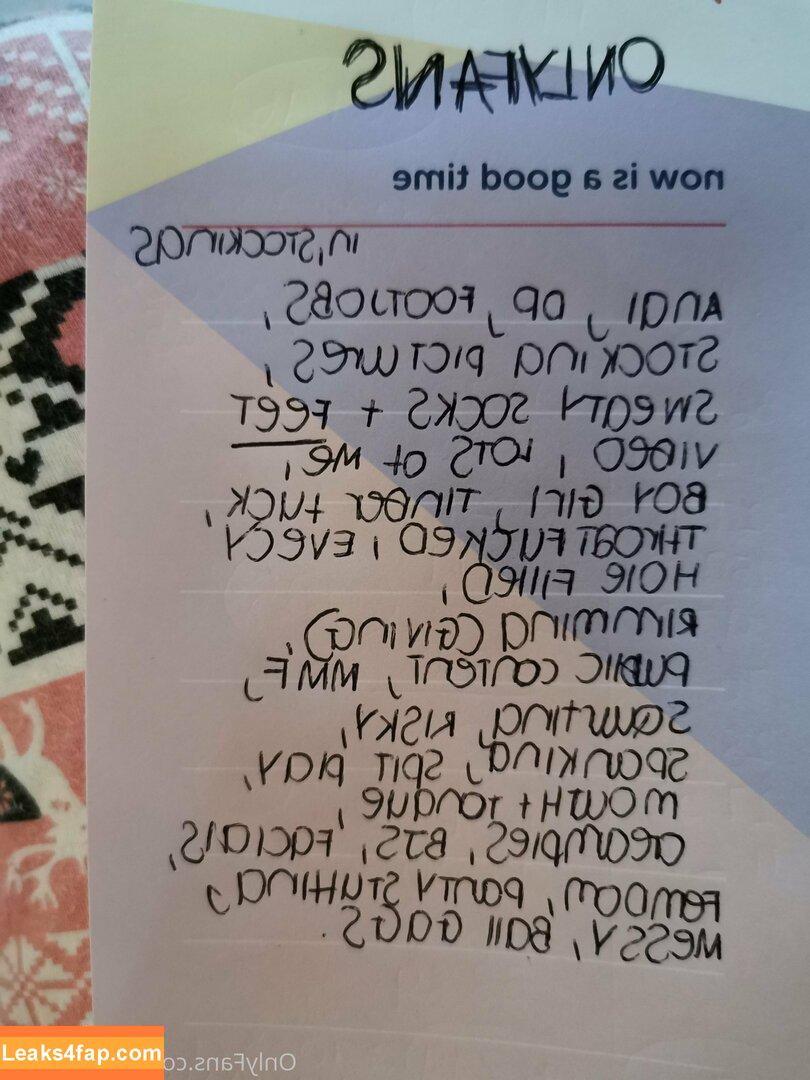 ONLYFANS
now is a good time
IN STOCKINGS
ANAl, DP, FOOTJOBS,
STOCKING PICTURES,
SWEATY SOCKS + FEET
VIDEO, LOTS OF ME,
BOY GIRl, TINDER FUCK,
THROATFUCKED, EVERY
HOlE FIllED,
RIMMING (GIVING),
PUBlIC CONTENT, MMF,
SQUIRTING, RISKY,
SPANKING, SPIT PlAY,
MOUTH + TONGUE,
CREAMPIES, BTS, FACIAlS,
FEMDOM, PANTY STUFFING,
MESSY, BAll GAGS.
Leaks4fap.com
OnlyFans.co